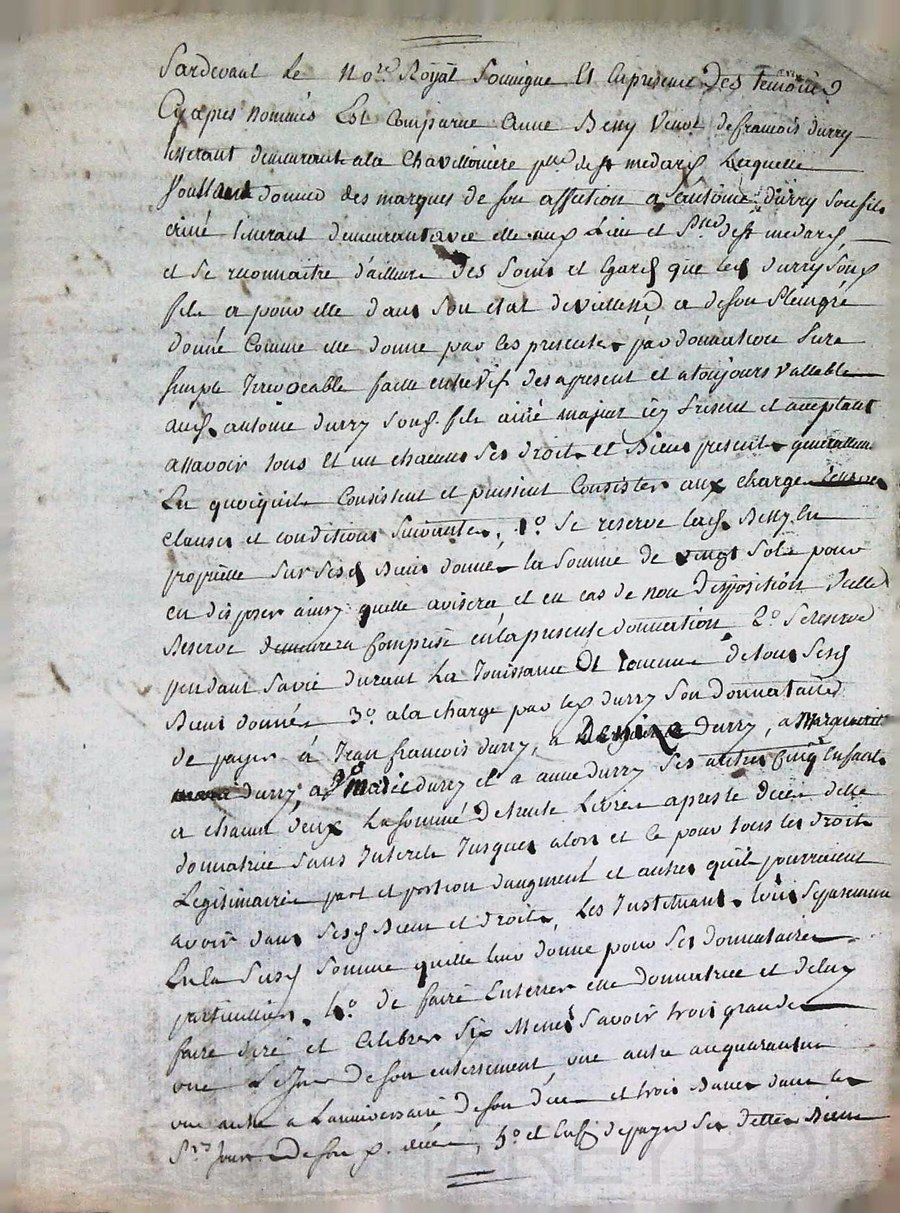 Pardevant Le No.re Royal Soussigne Et En presence des temoins
Cy apres nommés Est Comparue Anne Bessy Veuve de francois durry
demeurante a la Chavillionière p.sse de st medard Laquelle
Voullant donner des marques de son affection a antoine durry son fils
ainé demeurant avec elle aux Lieu et p.sse de st medard
et se reconnaitre d'ailleurs des soins et Egard que led durry son
fils a pour elle dans son etat de viellesse a de son plein gré
donné Comme elle donne par les presentes par donnation pure
simple Irrevocable faitte entre vifs des apresent et a toujours vallable
aud. antoine durry son fils ainé majeur icy present et acceptant
assavoir tous Et un chacuns ses droits et Biens presents generallement
En quoi quils Consistent et puissent Consister aux charges
clauses et conditions suivantes, 1.o se reserve lad. Bessy En
propriette sur sesd Biens donnés la somme de vingt sols pour
en disposer ainsy quelle avisera et en cas de non disposition
Reserve demeurera Comprise en la presente donnation 2.o se reserve
pendant sa vie durant La Jouissance Et revenus de tous sesd
Biens donnés 3.o a la charge par led durry son donnataire
de payer a Jean francois durry, a denize durry, a Marguerite
durry, a marie durry et a anne durry ses autres cinq Enfants
a chacun deux La somme de trente Livres apres le deces delle
donnatrice sans Interets Jusques alors et ce pour tous les droits
Legitimaires part et portion daugment et autres quils pourroient
avoir dans sesd Biens et droits, Les Instituant separement
En la susd somme quelle leur donne pour ses donnataires
particuliers. 4.o de faire Enterrer elle donnatrice et de luy
faire dire et Celebrer six Messes savoir trois grandes
une Le Jour de son enterrement, une autre au quarantin
une autre a Lanniversaire de son deces et trois Basses dans les
Jours de son deces, 5.o et Enfin de payer ses dettes Bien
PEYRON